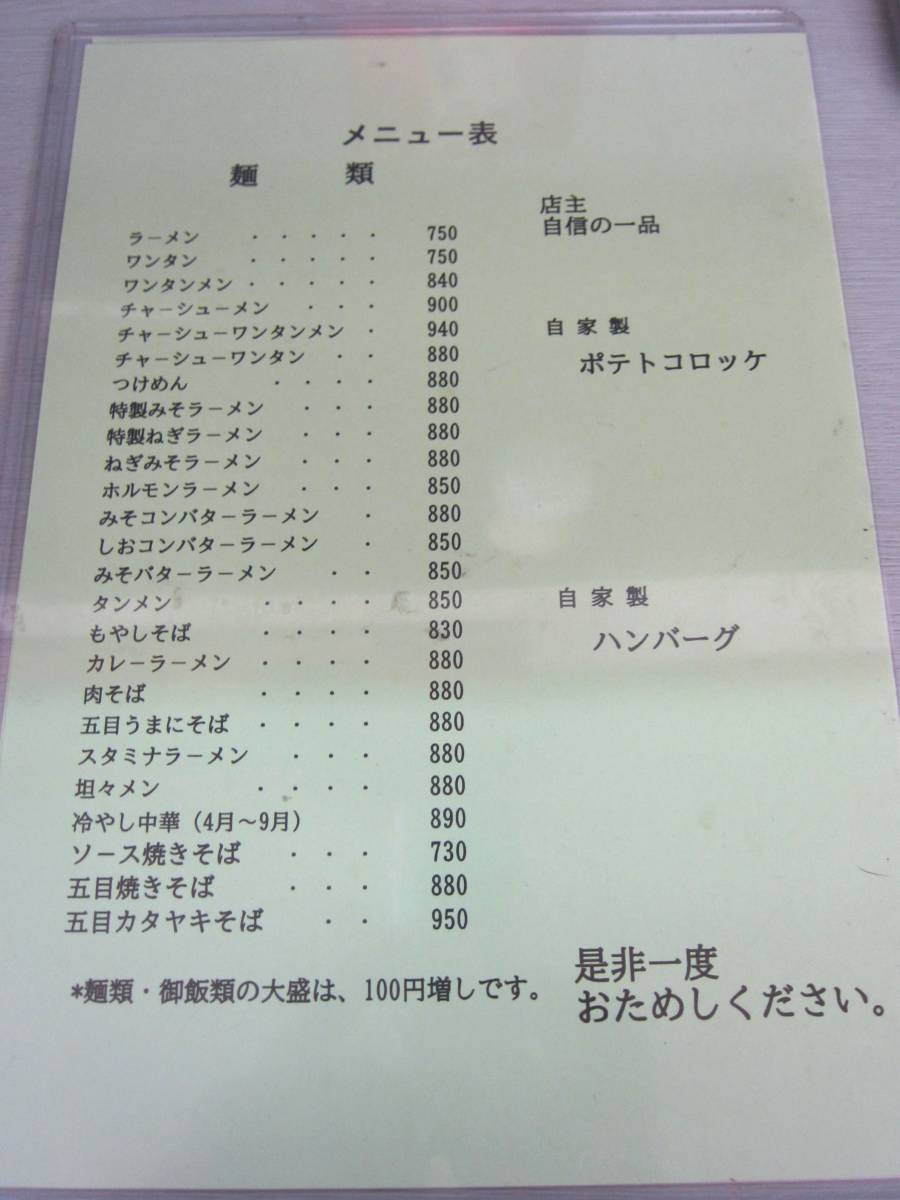 メニュー表
麺 類
ラーメン ・・・・・ 750
ワンタン ・・・・・ 750
ワンタンメン ・・・・・ 840
チャーシューメン ・・・ 900
チャーシューワンタンメン ・ 940
チャーシューワンタン ・・ 880
つけめん ・・・・ 880
特製みそラーメン ・・・ 880
特製ねぎラーメン ・・・ 880
ねぎみそラーメン ・・・ 880
ホルモンラーメン ・・・ 850
みそコンバターラーメン ・ 880
しおコンバターラーメン ・ 850
みそバターラーメン ・・ 850
タンメン ・・・・ 850
もやしそば ・・・・ 830
カレーラーメン ・・・・ 880
肉そば ・・・・ 880
五目うまにそば ・・・・ 880
スタミナラーメン ・・・ 880
坦々メン ・・・・ 880
冷やし中華（4月～9月） 890
ソース焼きそば ・・・ 730
五目焼きそば ・・・ 880
五目カタヤキそば ・・ 950
*麺類・御飯類の大盛は、100円増しです。
店主
自信の一品
自家製
ポテトコロッケ
自家製
ハンバーグ
是非一度
おためしください。